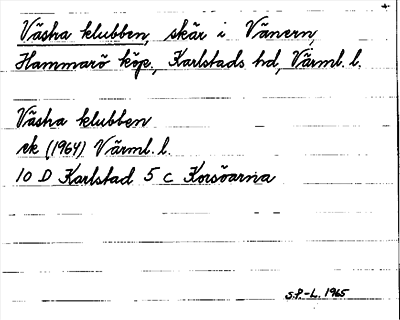 Västra klubben, skär i Vänern,
Hammarö köp., Karlstads hd, Värml. l.
Västra klubben
ek (1964) Värml. l.
10 D Karlstad 5 c Korsöarna
S.P.-L. 1965